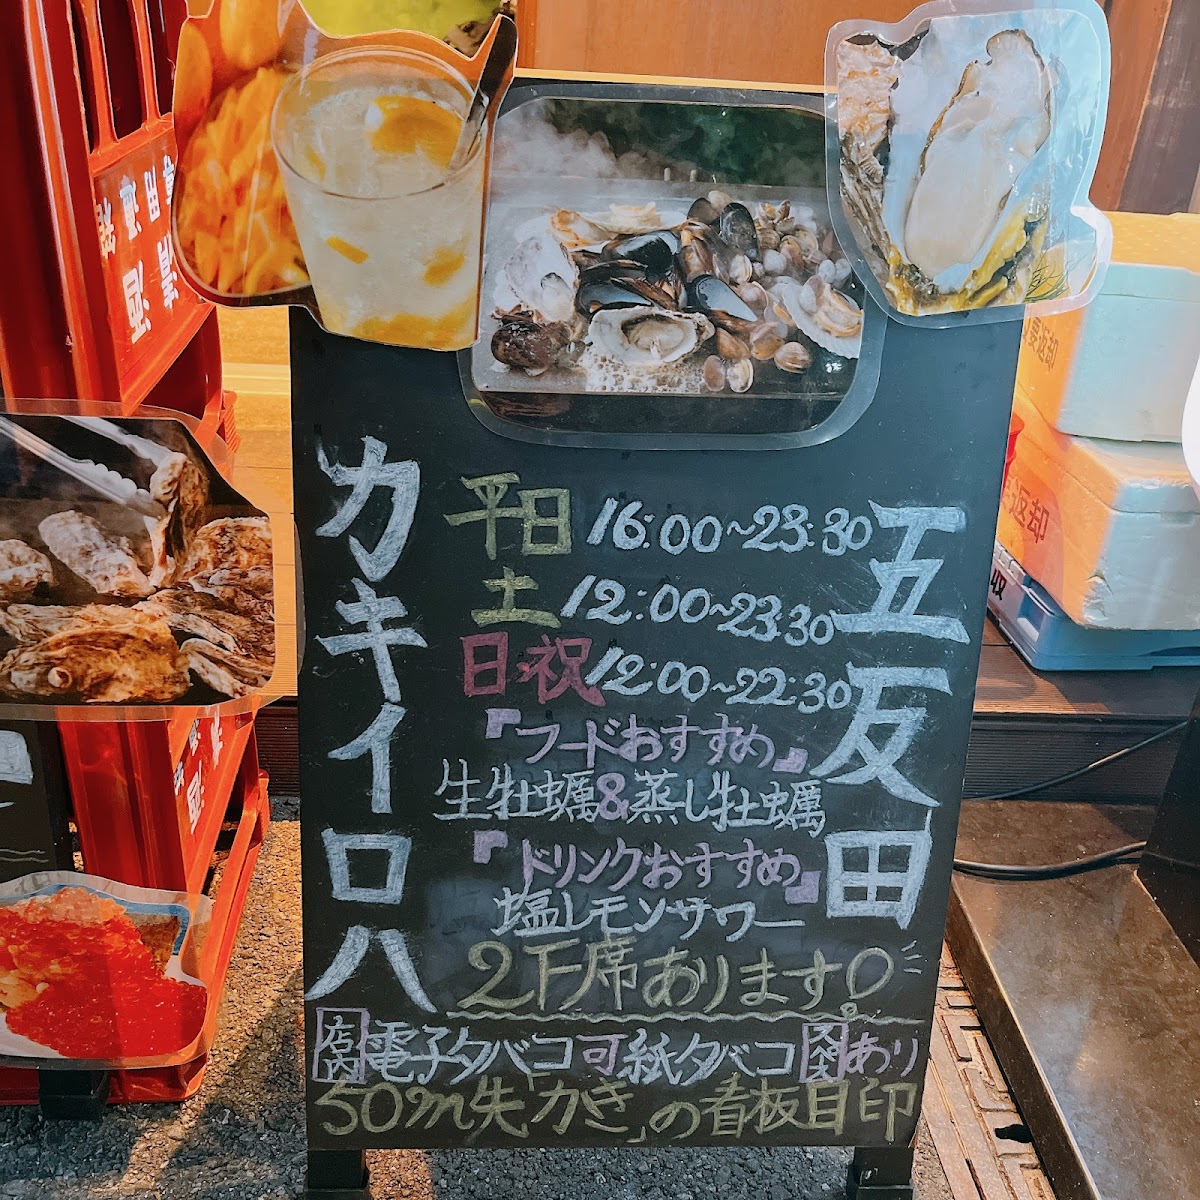 カキイロハ
五反田
平日 16:00~23:30
土 12:00~23:30
日・祝 12:00~22:30
『フードおすすめ』
生牡蠣&蒸し牡蠣
『ドリンクおすすめ』
塩レモンサワー
2F席あります!
店内電子タバコ可 紙タバコ あり
50m先「かき」の看板目印
返却
返却